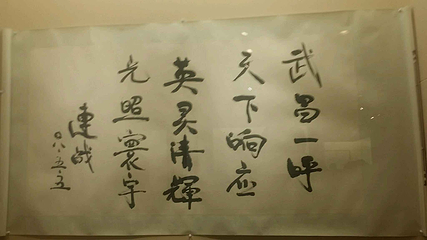 武昌一呼
天下响应
英灵清輝
光照寰宇
連战
〇八.五.五